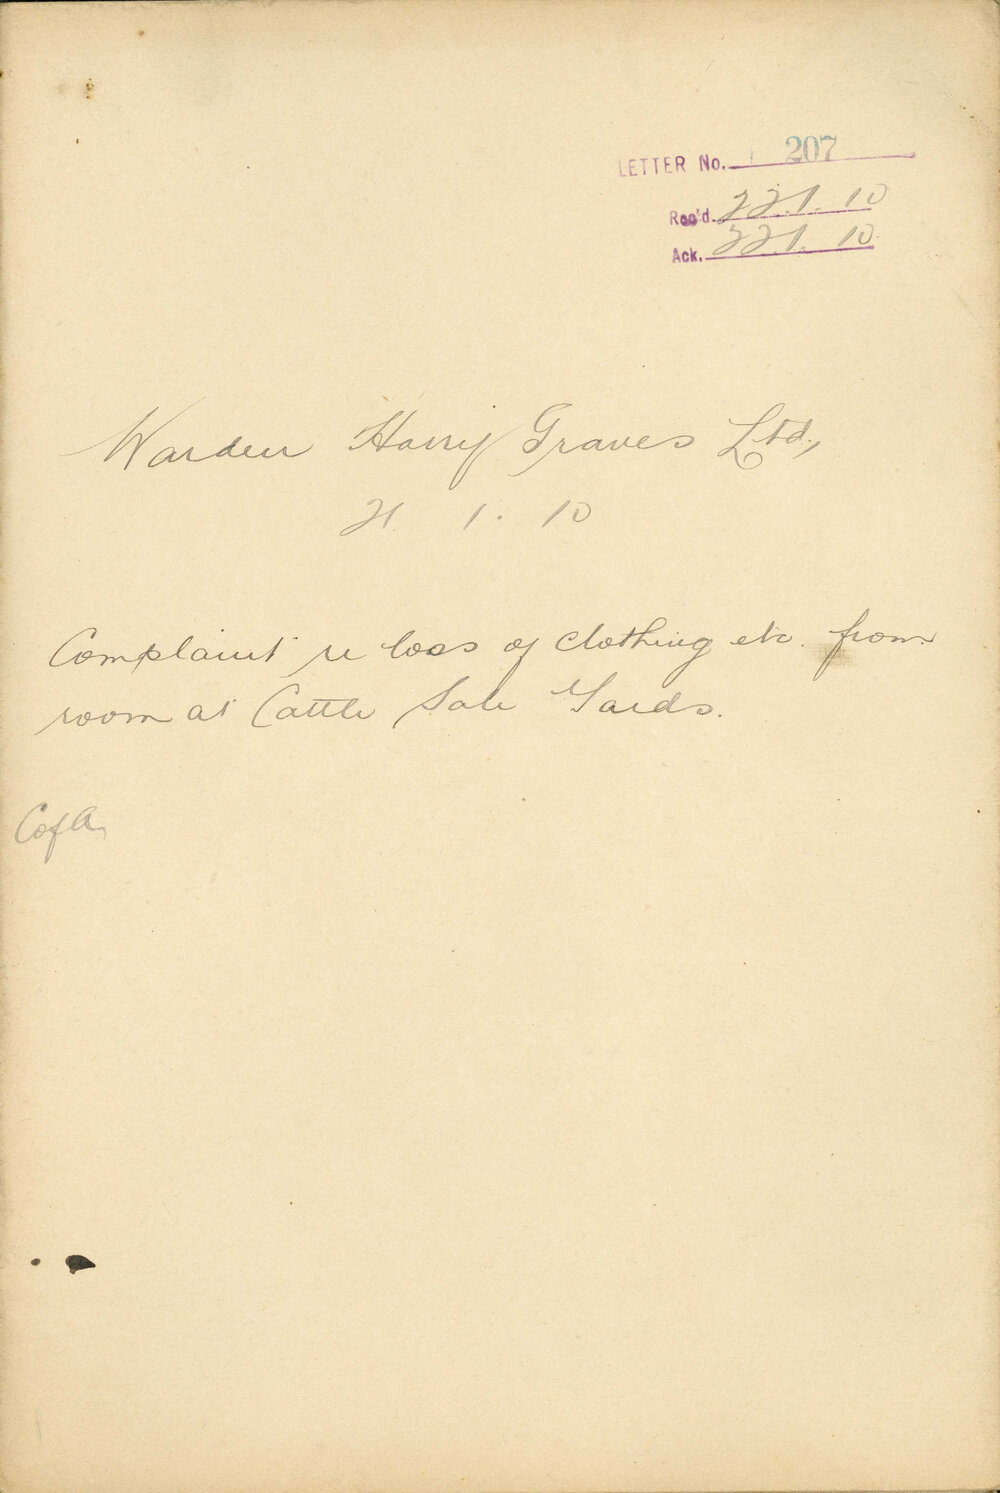 LETTER No. 207
Rec'd. 22.1.10
Ack. 22.1.10
Warden Harry Graves Ltd.,
21.1.10
Complaint re loss of clothing etc. from
room at Cattle Sale Yards.
C of A